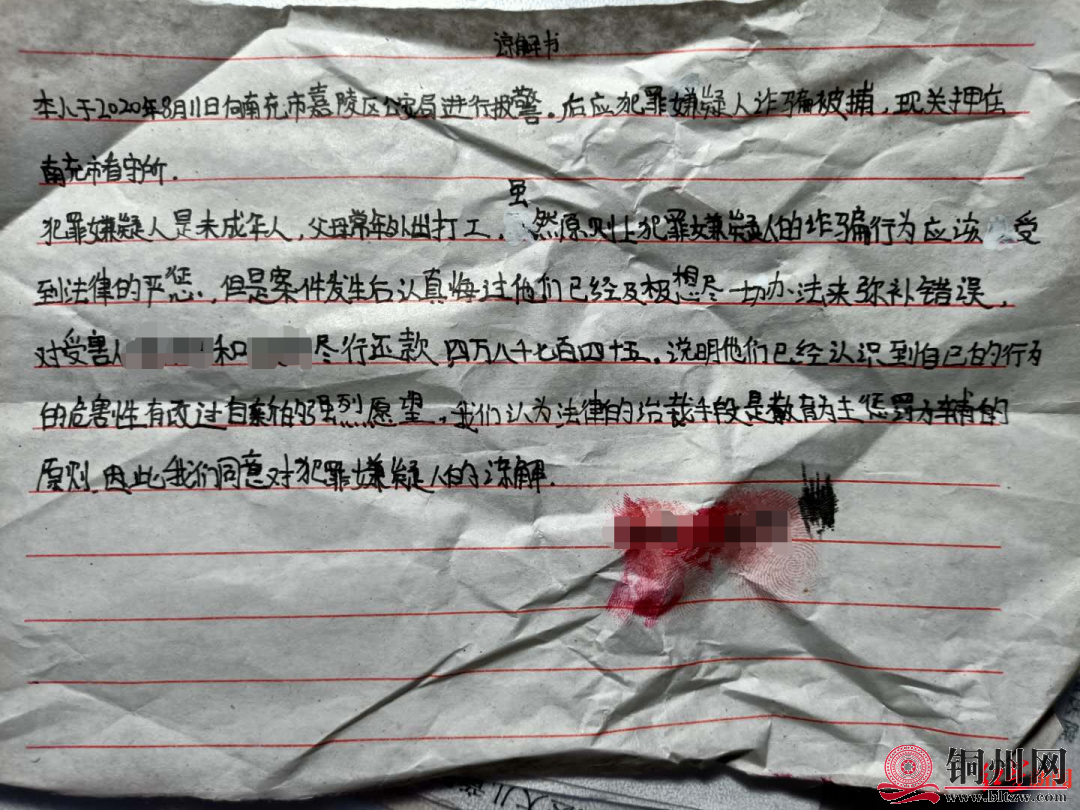 谅解书
本人于2020年8月11日向南充市嘉陵区公安局进行报警。后应犯罪嫌疑人诈骗被捕，现关押在
南充市看守所.
犯罪嫌疑人是未成年人，父母常年外出打工，虽然原则上犯罪嫌疑人的诈骗行为应该受
到法律的严惩，但是案件发生后认真悔过他们已经及极想尽一切办法来弥补错误，
对受害人 和 尽行还款四万八千七百四十五。说明他们已经认识到自己的行为
的危害性有改过自新的强烈愿望，我们认为法律的治裁手段是教育为主惩罚为辅的
原则，因此我们同意对犯罪嫌疑人的谅解.
铜州网
www.bltszw.com